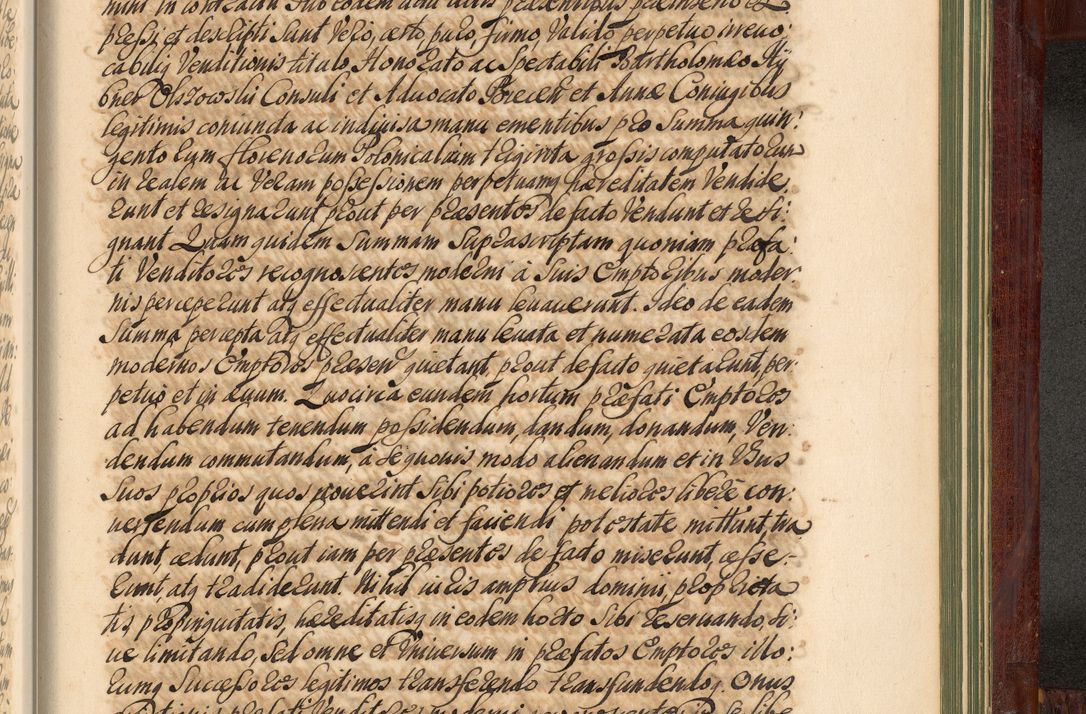 praessi et descripti sunt Vero, certo, puro, firmo, Valido perpetuo irreuo,
cabiliq Venditionis titulo Honorato ac Spectabili Bartholomæo Hÿ
bner Olszowskii Consuli et Aduocato et Annæ Coniugibus
legitimis coniuncta ac indiuisa manu ementibus pro Summa quin:
gentorum florenorum Polonicalium triginta grossis computatorum
in realem ac Veram possessionem perpetuamq hæreditatem Vendide,
runt et resignarunt prout per præsentes de facto Vendunt et resi:
gnant Quam quidem Summam Suprascriptam quoniam præfa:
ti Venditores recognoscentes moderni à Suis Emptoribus moder
nis perceperunt atq effectualiter manu leuauerunt. Ideo de eadem
Summa percepta atq effectualiter manu leuata et numerata eosdem
modernos Emptores præsen quietant, prout de facto quietarunt, per:
petuo et in æuum. Quocirca eundem hortum præfati Emptores
ad habendum tenendum possidendum, dandum, donandum, Ven:
dendum commutandum, à se quouis modo alienandum et in Vsus
Suos proprios quos Sibi potiores et meliores libere con:
uertendum cum plena mittendi et faciendi potestate mittunt, tra
dunt, cedunt, prout iam per præsentes de facto miserunt, cesse-
runt, atq tradiderunt. Nihil iuris amplius dominii, proprieta
tis propinquitatis, hæreditatisq in eodem horto Sibi reseruando, si:
ue limitando, Sed omne et Vniuersum in præfatos Emptores illo:
rumq Successores legitimos transferendo transfundendoq. Onus